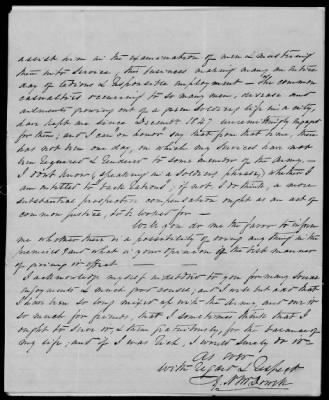 assist him in the examination of men & mustering
them into service, this business making many an entire
day of tedious & responsible employment — The common
casualties occurring to so many men, disease and
ailments growing out of a Soldiers life in a city,
have kept me since December 1847 unremittingly engaged
for them; and I can on honor say that from that time, there
has not been one day, on which my services have not
been required & rendered to some member of the Army. —
I don't know, (speaking in a Soldiers phrase) whether I
am entitled to back rations; if not, I do think, a more
substantial prospective compensation ought as an act of
common justice, to be looked for —
Will you do me the favor to inform
me whether there is a possibility of doing any thing in the
premises, and what in your opinion is the best manner
of giving it effect.
I acknowledge myself indebted to you for many
enjoyments & much good counsel; and I will but add that
I have been so long mixed up with the Army, and owe it
so much for friends, that I sometimes think that I
ought to serve it, & them gratuitously, for the balance of
my life; and if I was rich, I would surely do it.
As ever
with regard & respect